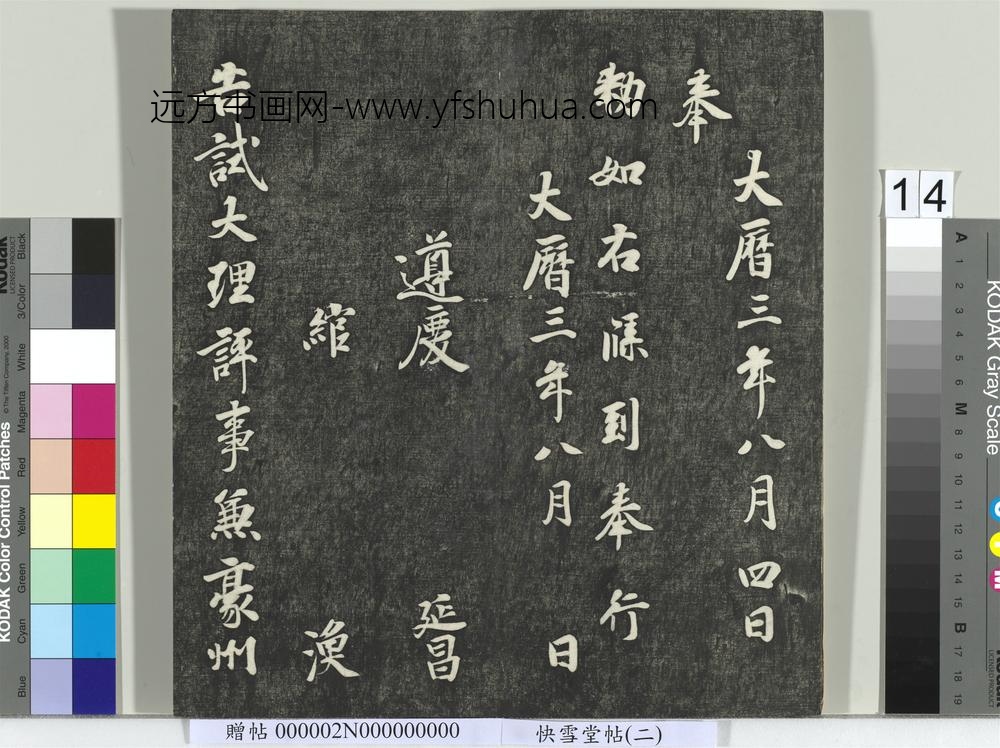 奉
大曆三年八月四日
勑如右牒到奉行
大曆三年八月 日
遵慶 延昌
綰 渙
告試大理評事兼豪州
远方书画网-www.yfshuhua.com
14
KODAK Color Control Patches
Blue Cyan Green Yellow Red Magenta White 3/Color Black
© The Tiffen Company, 2000
Kodak
LICENSED PRODUCT
KODAK Gray Scale
A 1 2 3 4 5 6 M 8 9 10 11 12 13 14 15 B 17 18 19
C
Y
M
Kodak
LICENSED PRODUCT
贈帖 000002N000000000
快雪堂帖(二)